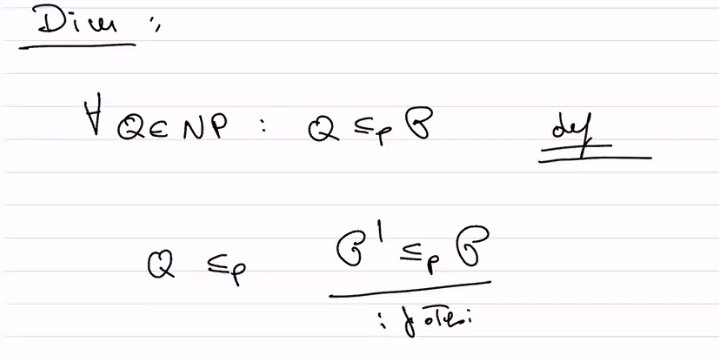 Dim :
∀ Q ∈ NP : Q ≤p P def
Q ≤p P' ≤p P
ipotesi